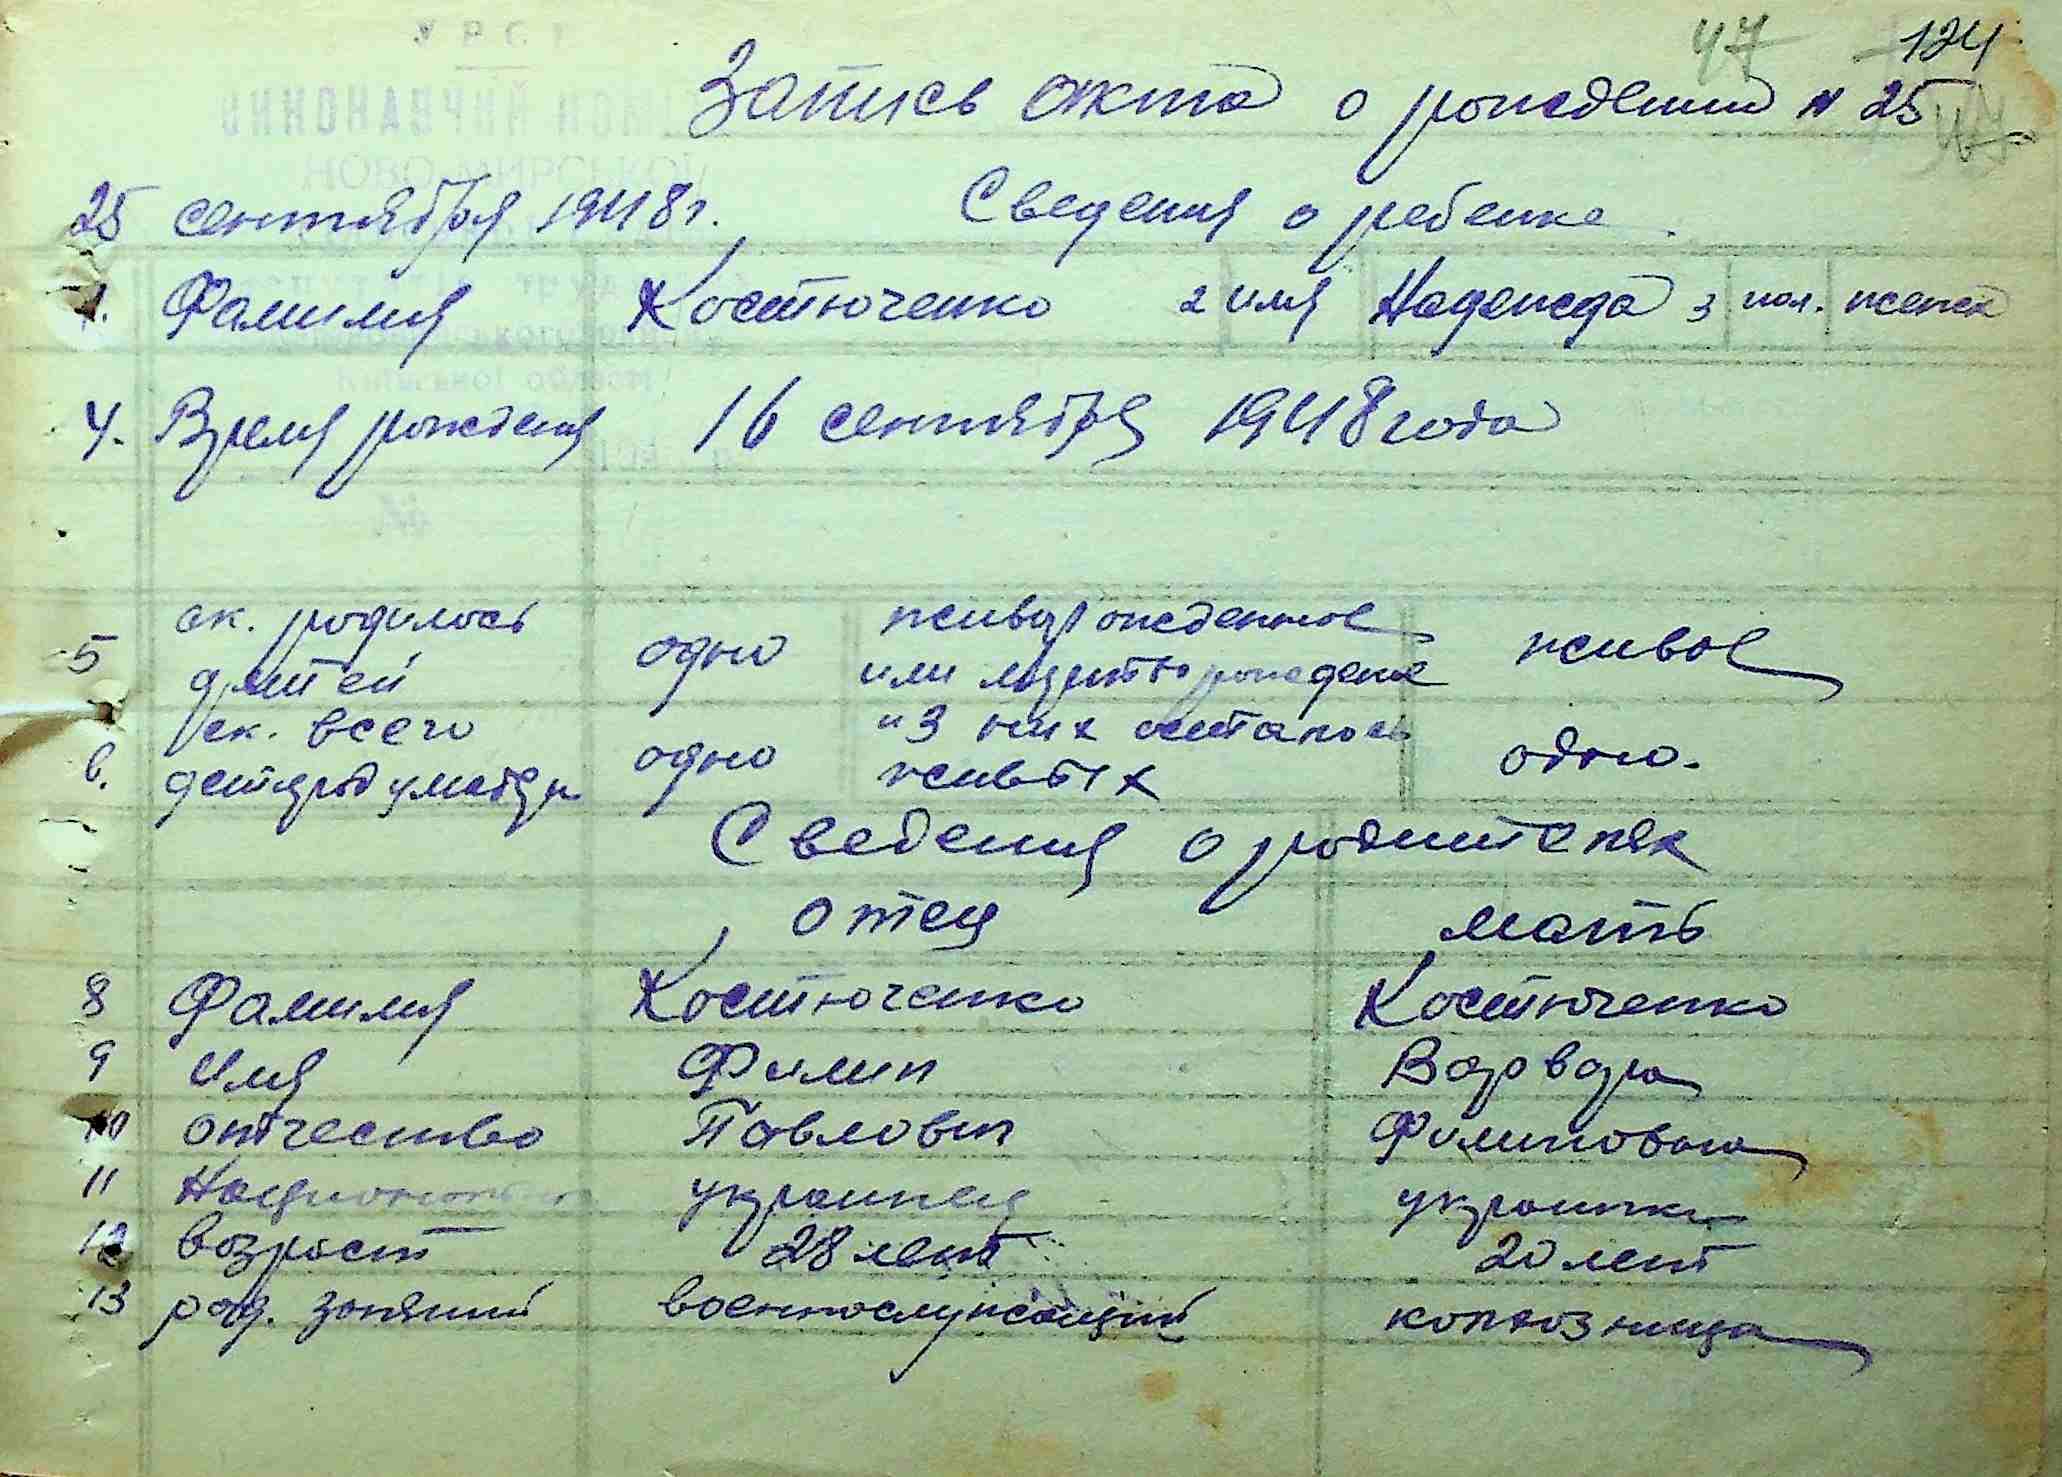 47 124
Запись акта о рождении N 25
25 сентября 1948 г. Сведения о ребенке.
1. Фамилия Костюченко 2 имя Надежда 3 пол. женск
4. Время рождения 16 сентября 1948 года
5 ск. родилось детей одно живорожденное или мертворожден живое
6. ск. всего детей у матери одно из них осталось живых одно.
Сведения о родителях
отец мать
8 Фамилия Костюченко Костюченко
9 Имя Филип Варвара
10 отчество Павлович Филиповна
11 Национальность украинец украинка
12 возраст 28 лет 20 лет
13 род. занятий военнослужащий колхозница